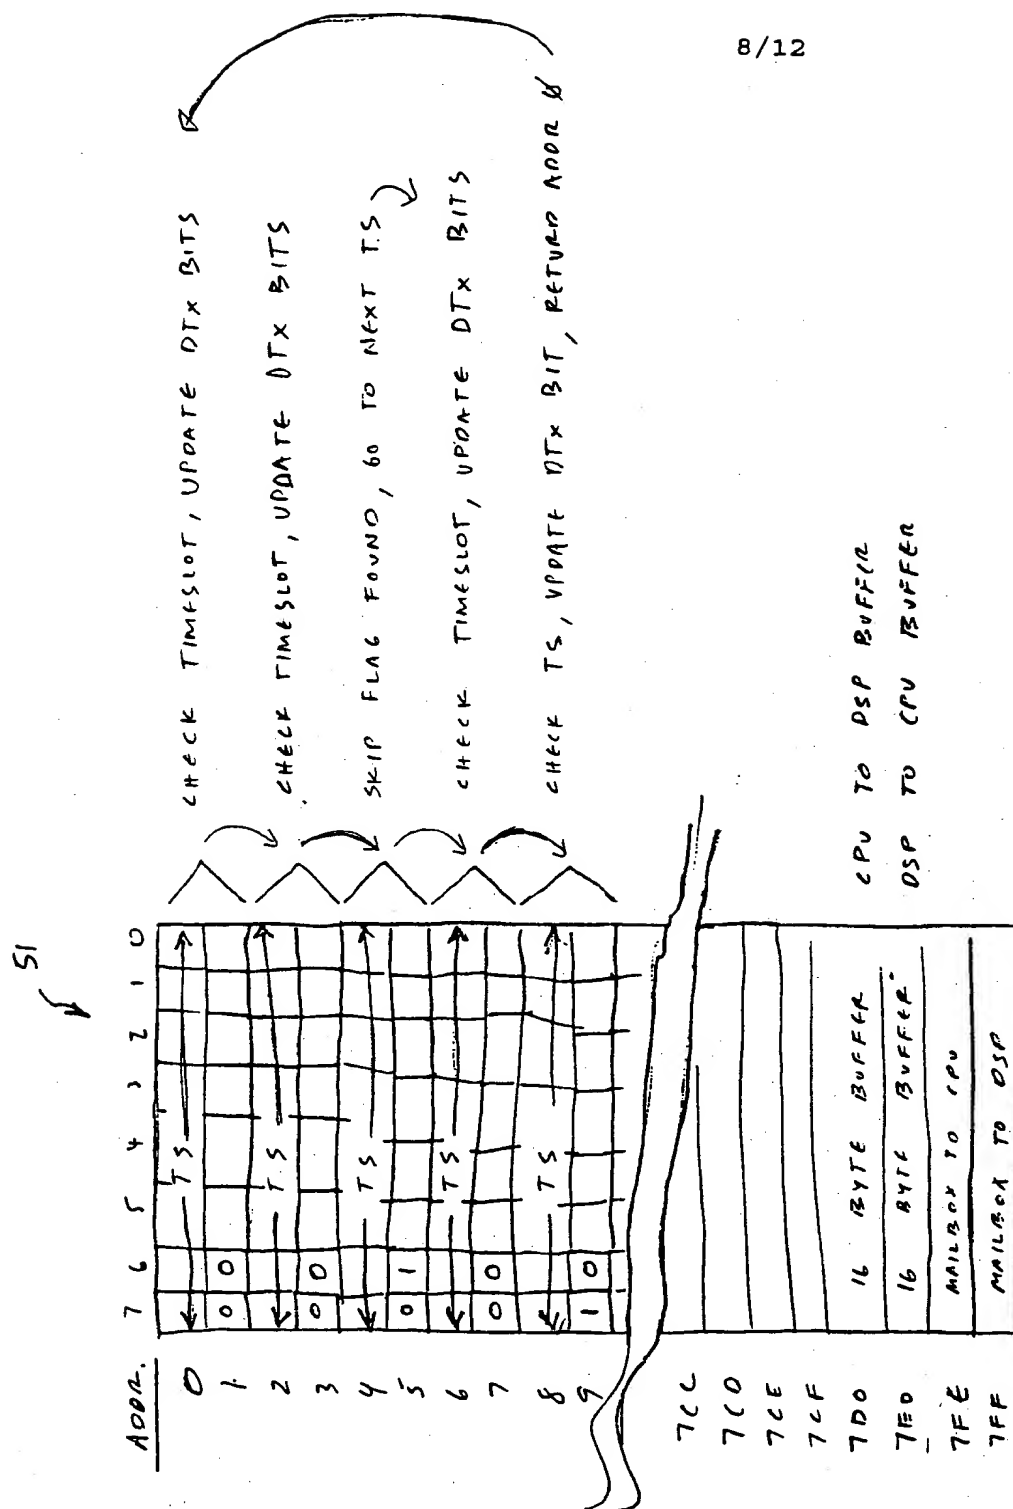 8/12
51
ADDR. 7 6 5 4 3 2 1 0
0 TS CHECK TIMESLOT, UPDATE DTX BITS
1 0 0
2 TS CHECK TIMESLOT, UPDATE DTX BITS
3 0 0
4 TS SKIP FLAG FOUND, GO TO NEXT TS
5 0 1
6 TS CHECK TIMESLOT, UPDATE DTX BITS
7 0 0
8 TS CHECK TS, UPDATE DTX BIT, RETURD ADDR 0
9 1 0
7CC
7CD
7CE
7CF
7D0 16 BYTE BUFFER CPU TO DSP BUFFER
7E0 16 BYTE BUFFER DSP TO CPU BUFFER
7FE MAILBOX TO CPU
7FF MAILBOX TO DSP